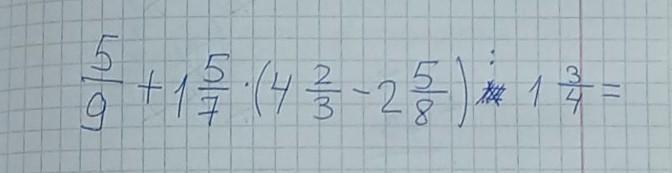 5/9 + 1 5/7 · (4 2/3 - 2 5/8) : 1 3/4 =